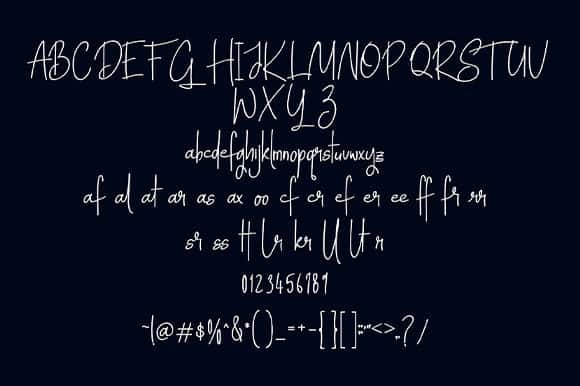 ABCDEFGHIJKLMNOPQRSTUV
WXYZ
abcdefghijklmnopqrstuvwxyz
af al at ar as ax oo cf cr ef er ee ff fr rr
sr ss tt lr kr ll lt r
0123456789
~|@#$%^&*()_=+-{}[]:;"'<>,.?/